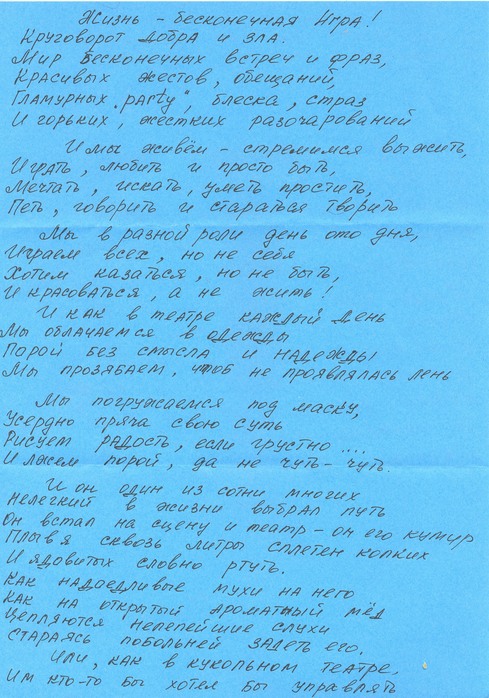 Жизнь - бесконечная Игра!
Круговорот добра и зла.
Мир бесконечных встреч и фраз,
Красивых жестов, обещаний,
Гламурных "party", блеска, страз
И горьких, жестких разочарований
И мы живём - стремимся выжить,
Играть, любить и просто быть,
Мечтать, искать, уметь простить,
Петь, говорить и стараться творить
Мы в разной роли день ото дня,
Играем всех, но не себя
Хотим казаться, но не быть,
И красоваться, а не жить!
И как в театре каждый день
Мы облачаемся в одежды
Порой без смысла и надежды
Мы прозябаем, чтоб не проявлялась лень
Мы погружаемся под маску,
Усердно пряча свою суть
Рисуем радость, если грустно ....
И лжем порой, да не чуть-чуть.
И он один из сотни многих
Нелегкий в жизни выбрал путь
Он встал на сцену и театр - он его кумир
Плывя сквозь литры сплетен колких
И ядовитых словно ртуть.
Как надоедливые мухи на него
Как на открытый ароматный мёд
Цепляются нелепейшие слухи
Стараясь побольней задеть его.
Или, как в кукольном театре,
Им кто-то бы хотел бы управлять